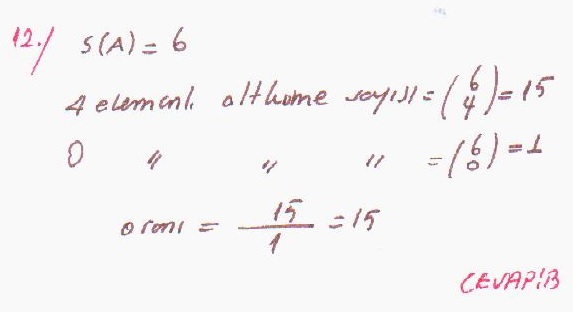 12./ s(A) = 6
4 elemanlı altküme sayısı = (6 4) = 15
0 " " " = (6 0) = 1
oranı = 15/1 = 15
CEVAP: B